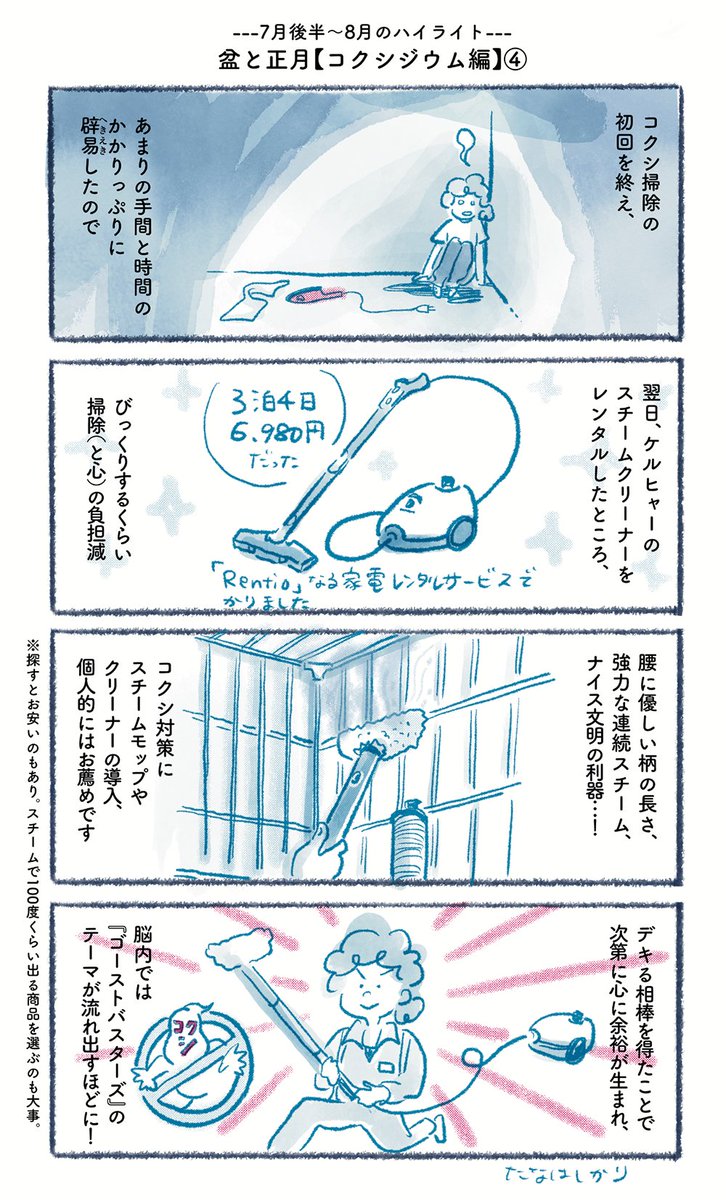 ---7月後半〜8月のハイライト---
盆と正月【コクシジウム編】④
コクシ掃除の
初回を終え、
あまりの手間と時間の
かかりっぷりに
辟易したので
へきえき
翌日、ケルヒャーの
スチームクリーナーを
レンタルしたところ、
3泊4日
6.980円
だった
「Rentio」なる家電レンタルサービスで
かりました
びっくりするくらい
掃除(と心)の負担減
腰に優しい柄の長さ、
強力な連続スチーム、
ナイス文明の利器…!
コクシ対策に
スチームモップや
クリーナーの導入、
個人的にはお薦めです
※探すとお安いのもあり。スチームで100度くらい出る商品を選ぶのも大事。
デキる相棒を得たことで
次第に心に余裕が生まれ、
脳内では
『ゴーストバスターズ』の
テーマが流れ出すほどに!
コクシ
たなはしかり